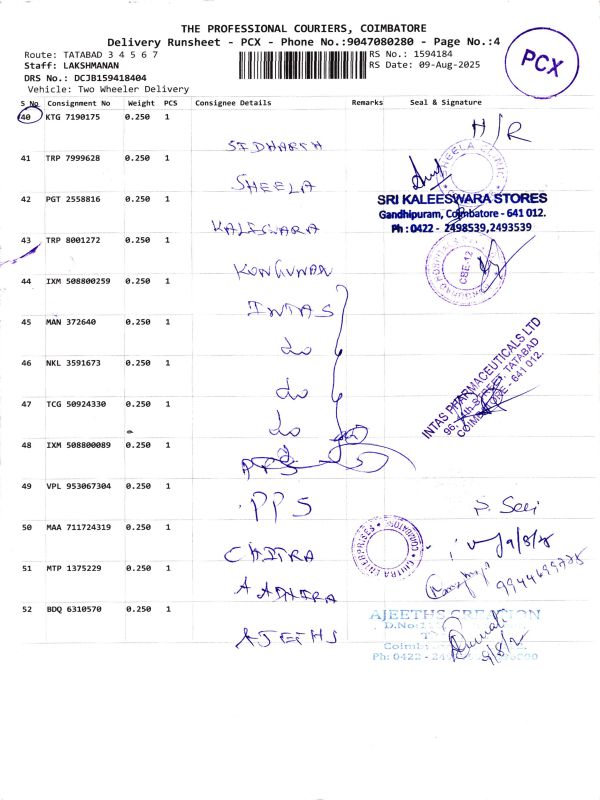 THE PROFESSIONAL COURIERS, COIMBATORE
Delivery Runsheet - PCX - Phone No.:9047080280 - Page No.:4
Route: TATABAD 3 4 5 6 7
RS No.: 1594184
Staff: LAKSHMANAN
RS Date: 09-Aug-2025
DRS No.: DCJB159418404
Vehicle: Two Wheeler Delivery
PCX
S No Consignment No Weight PCS Consignee Details Remarks Seal & Signature
40 KTG 7190175 0.250 1
SIDHARTH H/R
41 TRP 7999628 0.250 1
SHEELA
SHEELA CLINIC
42 PGT 2558816 0.250 1
KALESWARA
SRI KALEESWARA STORES
Gandhipuram, Coimbatore - 641 012.
Ph : 0422 - 2498539,2493539
43 TRP 8001272 0.250 1
KONGUNAR
CBE-12
44 IXM 508800259 0.250 1
INTAS
45 MAN 372640 0.250 1
do
46 NKL 3591673 0.250 1
do
47 TCG 50924330 0.250 1
do
INTAS PHARMACEUTICALS LTD
96, TATABAD
COIMBATORE - 641 012.
48 IXM 508800089 0.250 1
49 VPL 953067304 0.250 1
PPS
50 MAA 711724319 0.250 1
CHITRA
CHITRA ENTERPRISES
9/8/25
51 MTP 1375229 0.250 1
AADHIRA
9944699775
52 BDQ 6310570 0.250 1
AJEETHS
AJEETHS CREATION
D.No:
Ph: 0422 -
9/8/2